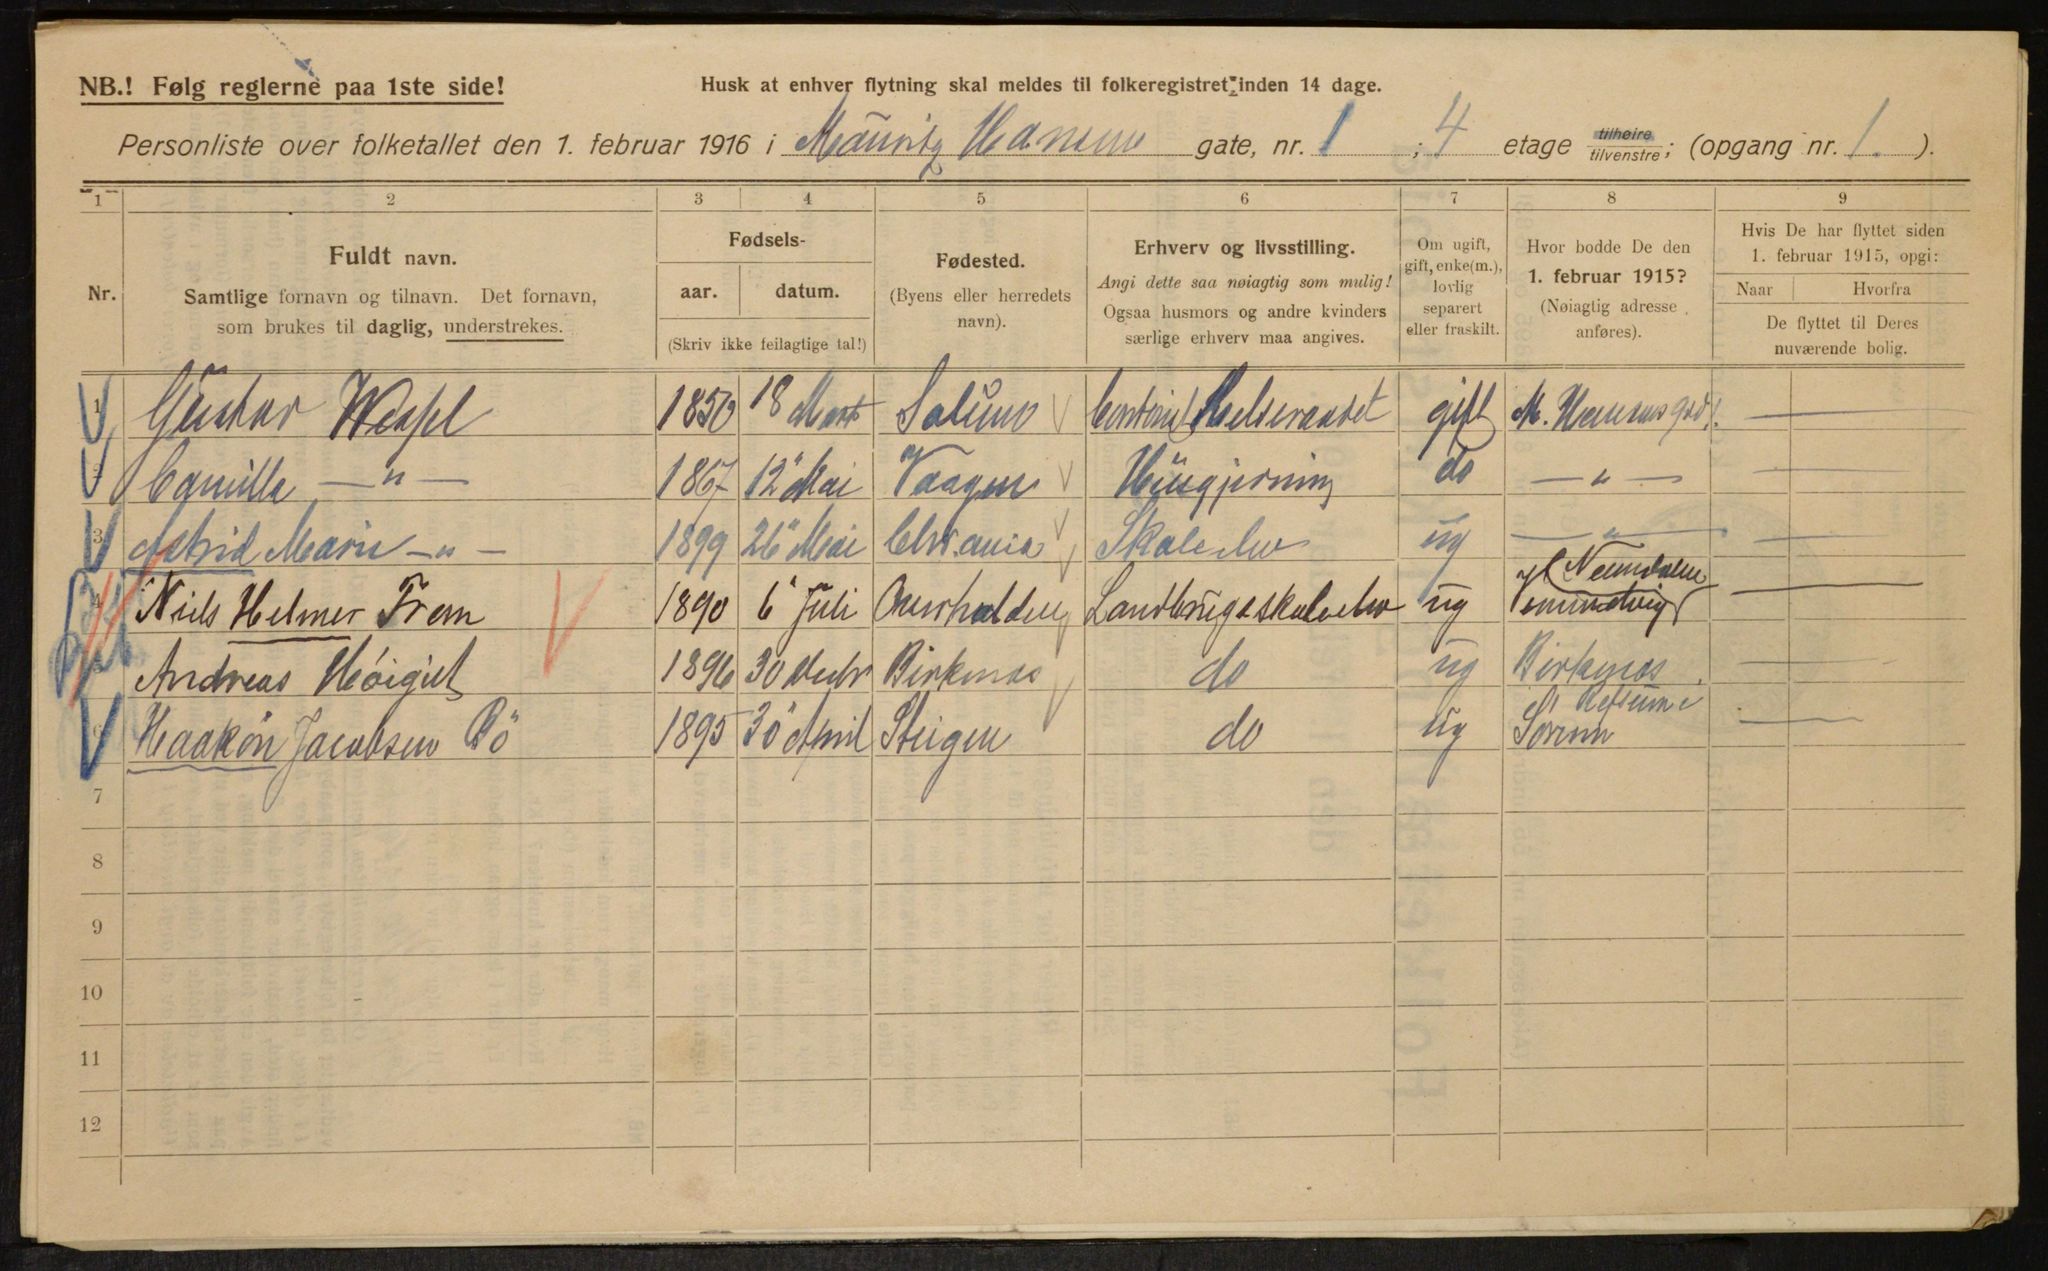 NB.! Følg reglerne paa 1ste side! Husk at enhver flytning skal meldes til folkeregistret inden 14 dage.
Personliste over folketallet den 1. februar 1916 i Mauritz Hansens gate, nr. 1 ; 4 etage tilhøire tilvenstre; (opgang nr. 1. ).
1 2 3 4 5 6 7 8 9
Nr.
Fuldt navn.
Samtlige fornavn og tilnavn. Det fornavn,
som brukes til daglig, understrekes.
Fødsels-
aar. datum.
(Skriv ikke feilagtige tal!)
Fødested.
(Byens eller herredets
navn).
Erhverv og livsstilling.
Angi dette saa nøiagtig som mulig!
Ogsaa husmors og andre kvinders
særlige erhverv maa angives.
Om ugift,
gift, enke(m.),
lovlig
separert
eller fraskilt.
Hvor bodde De den
1. februar 1915?
(Nøiagtig adresse
anføres).
Hvis De har flyttet siden
1. februar 1915, opgi:
Naar Hvorfra
De flyttet til Deres
nuværende bolig.
1 Gustav Wessel 1850 18 Marts Solum gift M. Hansens gad 1.
2 Camilla — " — 1867 12 Mai Vaagen Husgjerning do — " —
3 Astrid Marie — " — 1899 26 Mai Chr.ania Skoleelev ug — " —
4 Niels Helmer Trem 1890 6 Juli Overhalden Landbrugsskoleelev ug Namdalen
Andreas 1896 30 Birkenes do ug Birkenes
6 Haakon Jacobsen Bö 1895 30 April Steigen do ug Sörum
7
8
9
10
11
12